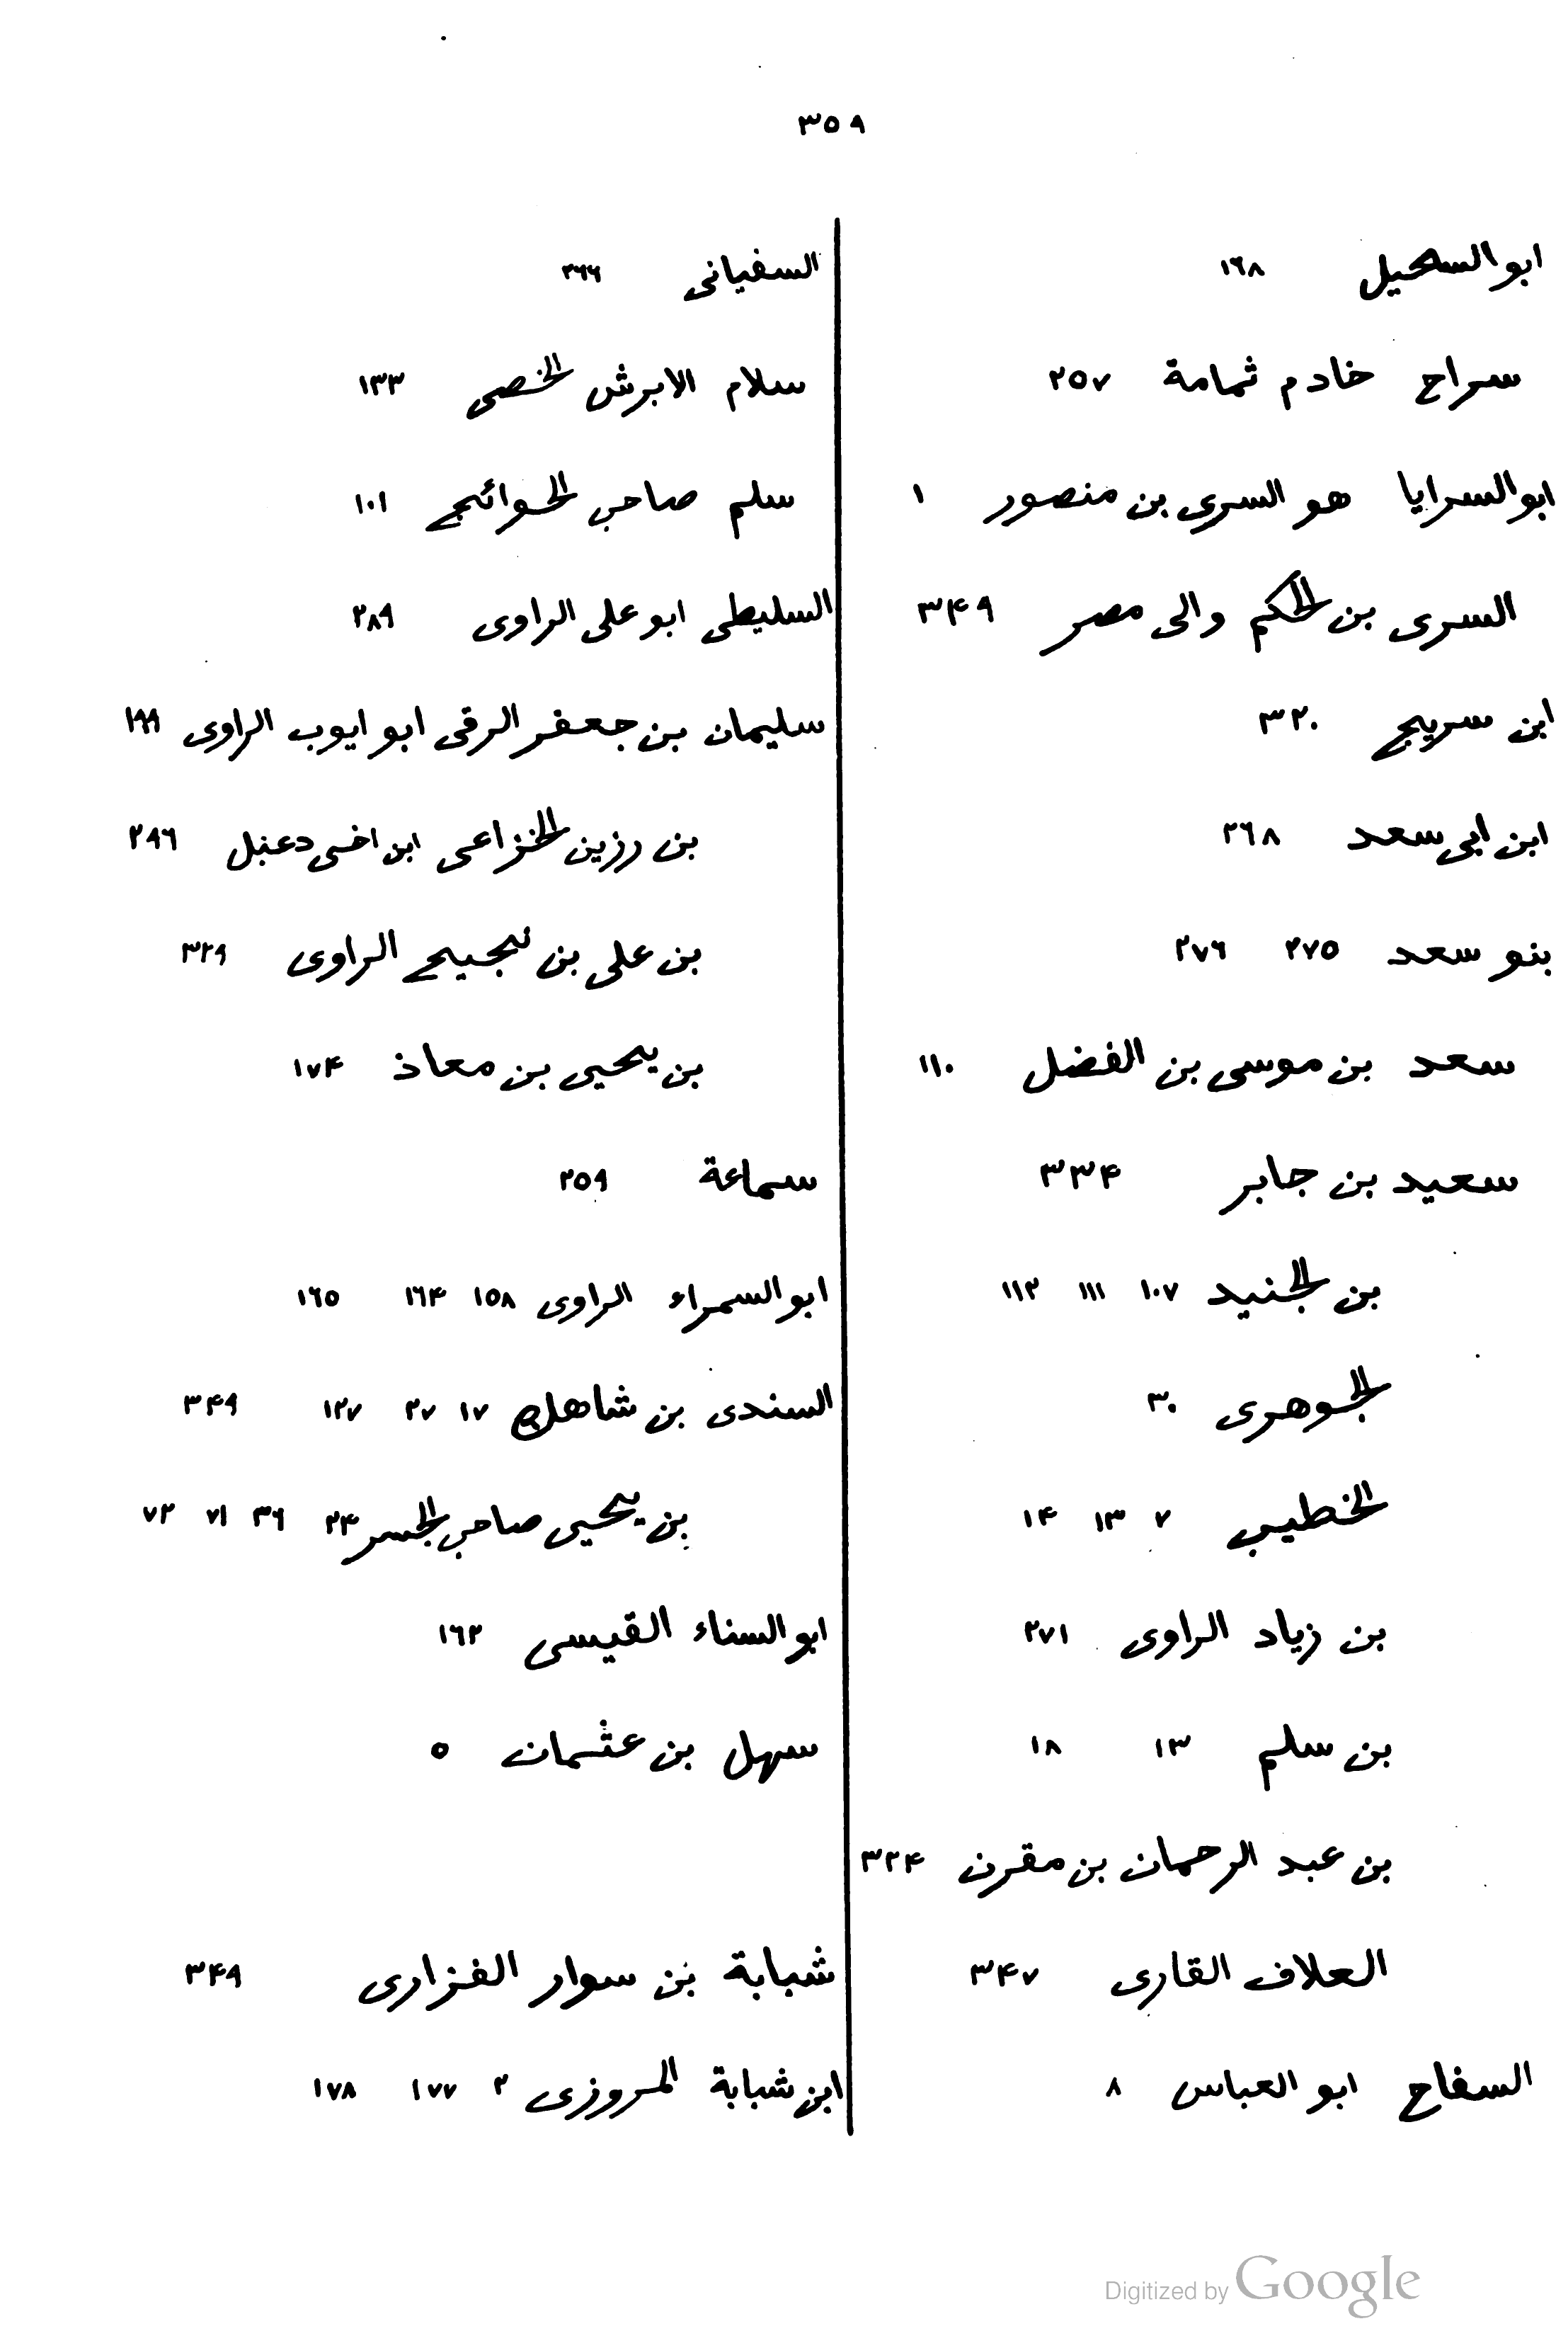 ٣٥٩
ابو السحيل ١٦٨
سراج خادم ثمامة ٢٥٧
ابو السرايا هو السرى بن منصور ١
السرى بن الحكم والى مصر ٣۴٩
ابن سريج ٣٢٠
ابن ابى سعد ٢٦٨
بنو سعد ٢٧٥ ٢٧٦
سعد بن موسى بن الفضل ١١٠
سعيد بن جابر ٣٣۴
بن الجنيد ١٠٧ ١١١ ١١٢
الجوهرى ٣٠
الخطيب ٧ ١٣ ١۴
بن زياد الراوى ٢٧١
بن سلم ١٣ ١٨
بن عبد الرحمان بن مقرن ٣٢۴
العلاف القارى ٣۴٧
السفاح ابو العباس ٨
السفيانى ٢٦٦
سلام الابرش الخصى ١٣٣
سلم صاحب الحوائج ١٠١
السليطى ابو على الراوى ٢٨٩
سليمان بن جعفر الرقى ابو ايوب الراوى ١٩٩
بن رزين الخزاعى ابن اخى دعبل ٢٩٦
بن على بن نجيح الراوى ٣٢٩
بن يحيى بن معاذ ١٧۴
سماعة ٢٥٩
ابو السمراء الراوى ١٥٨ ١٦۴ ١٦٥
السندى بن شاهك ١٧ ٢٧ ١٢٧ ٣۴٩
بن يحيى صاحب الجسر ٢۴ ٣٦ ٧١ ٧٢
ابو السناء القيسى ١٦٢
سهل بن عثمان ٥
شبابة بن سوار الفزارى ٣۴٩
ابن شبابة المروزى ٢ ١٧٧ ١٧٨
Digitized by Google